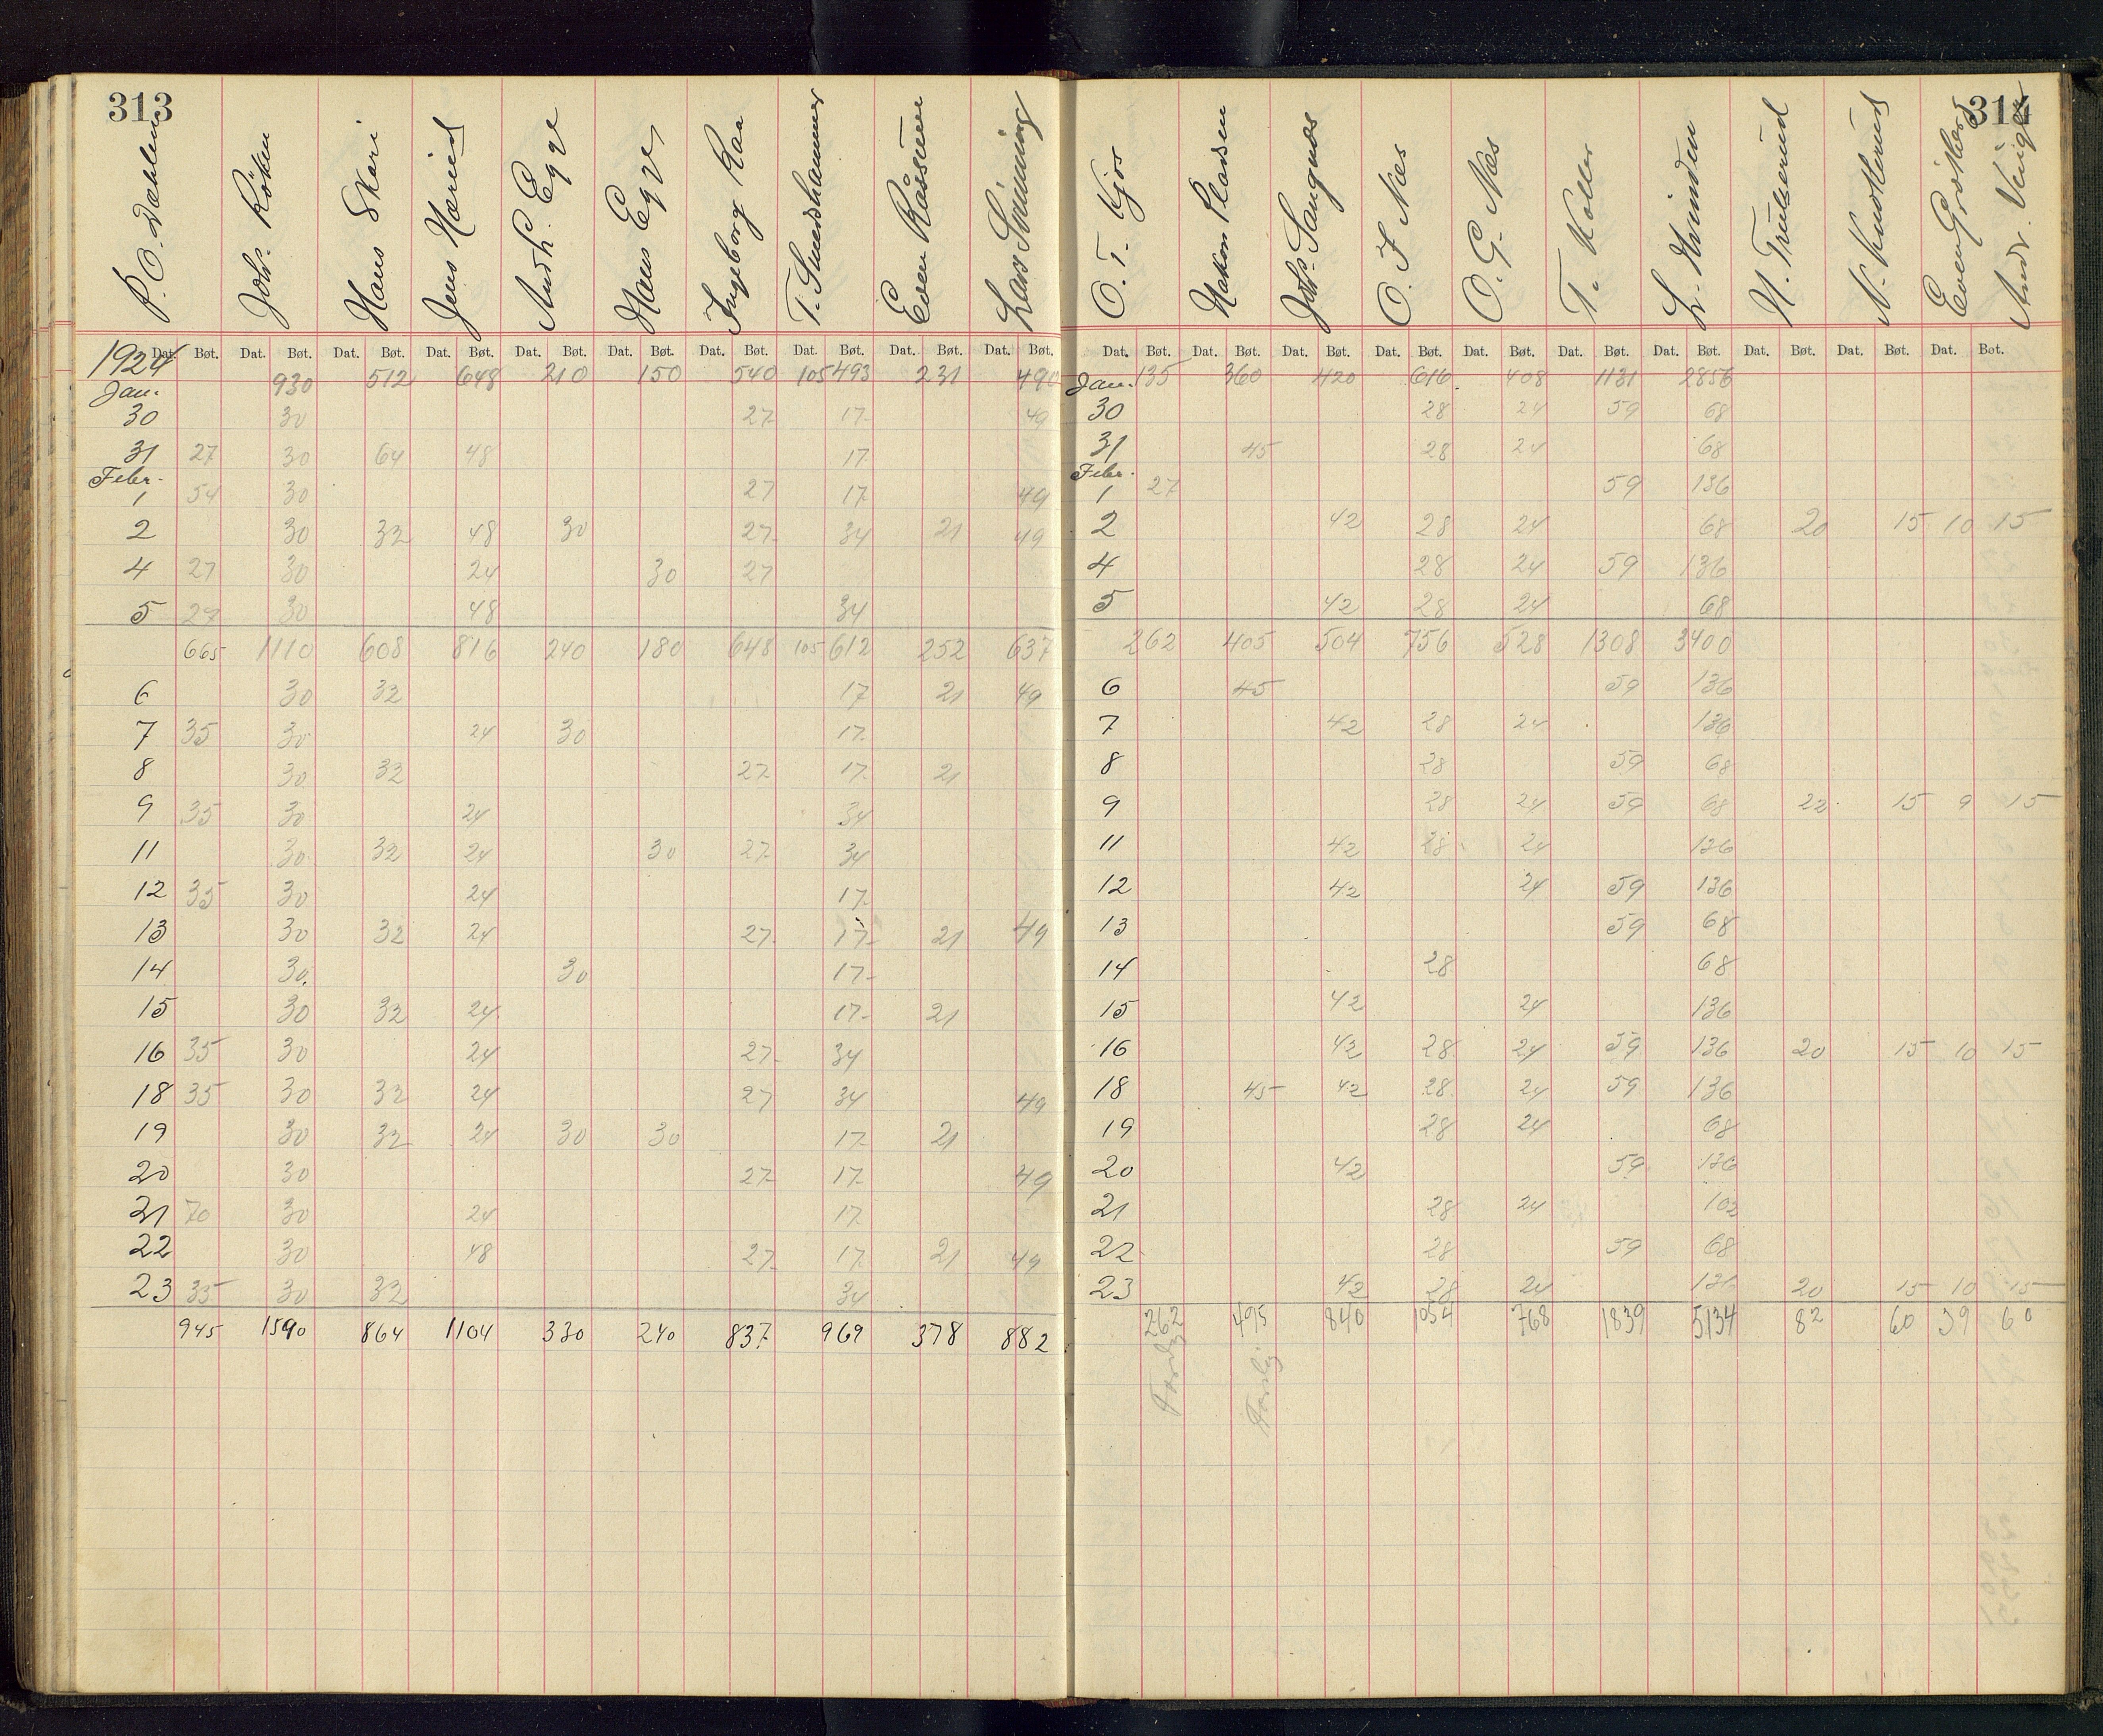 313
P. O. Dæhlen Johs. Röken Hans Skari Jens Hæried Andh. Egge Hans Egge Ingeborg Raa T. Smedshammer Even Raassum Lars Svinning
1924 Dat. Bøt. Dat. Bøt. Dat. Bøt. Dat. Bøt. Dat. Bøt. Dat. Bøt. Dat. Bøt. Dat. Bøt. Dat. Bøt. Dat. Bøt.
Jan. 930 512 648 210 150 540 105 493 231 490
30 30 27 17 49
31 27 30 64 48 17
Febr.
1 54 30 27 17 49
2 30 32 48 30 27 34 21 49
4 27 30 24 30 27
5 27 30 48 34
665 1110 608 816 240 180 648 105 612 252 637
6 30 32 17 21 49
7 35 30 24 30 17
8 30 32 27 17 21
9 35 30 24 34
11 30 32 24 30 27 34
12 35 30 24 17
13 30 32 24 27 17 21 49
14 30 30 17
15 30 32 24 17 21
16 35 30 24 27 34
18 35 30 32 24 27 34 49
19 30 32 24 30 30 17 21
20 30 27 17 49
21 70 30 24 17
22 30 48 27 17 21 49
23 35 30 32 34
945 1590 864 1104 330 240 837 969 378 882
314
O. T. Kjos Hakon Johs. Sangnæs O. J. Næs O. G. Næs T. Koller L. Hvinden H. Trulserud N. Knudtlerud Even Andr.
Dat. Bøt. Dat. Bøt. Dat. Bøt. Dat. Bøt. Dat. Bøt. Dat. Bøt. Dat. Bøt. Dat. Bøt. Dat. Bøt. Dat. Bøt.
Jan. 135 360 420 616 408 1131 2856
30 28 24 59 68
31 45 28 24 68
Febr.
1 27 59 136
2 42 28 24 68 20 15 10 15
4 28 24 59 136
5 42 28 24 68
262 405 504 756 528 1308 3400
6 45 59 136
7 42 28 24 136
8 28 59 68
9 28 24 59 68 22 15 9 15
11 42 28 24 136
12 42 24 59 136
13 59 68
14 28 68
15 42 24 136
16 42 28 24 59 136 20 15 10 15
18 45 42 28 24 59 136
19 28 24 68
20 42 59 136
21 28 24 102
22 28 59 68
23 42 28 24 20 15 10 15
262 495 840 1054 768 1839 5134 82 60 39 60